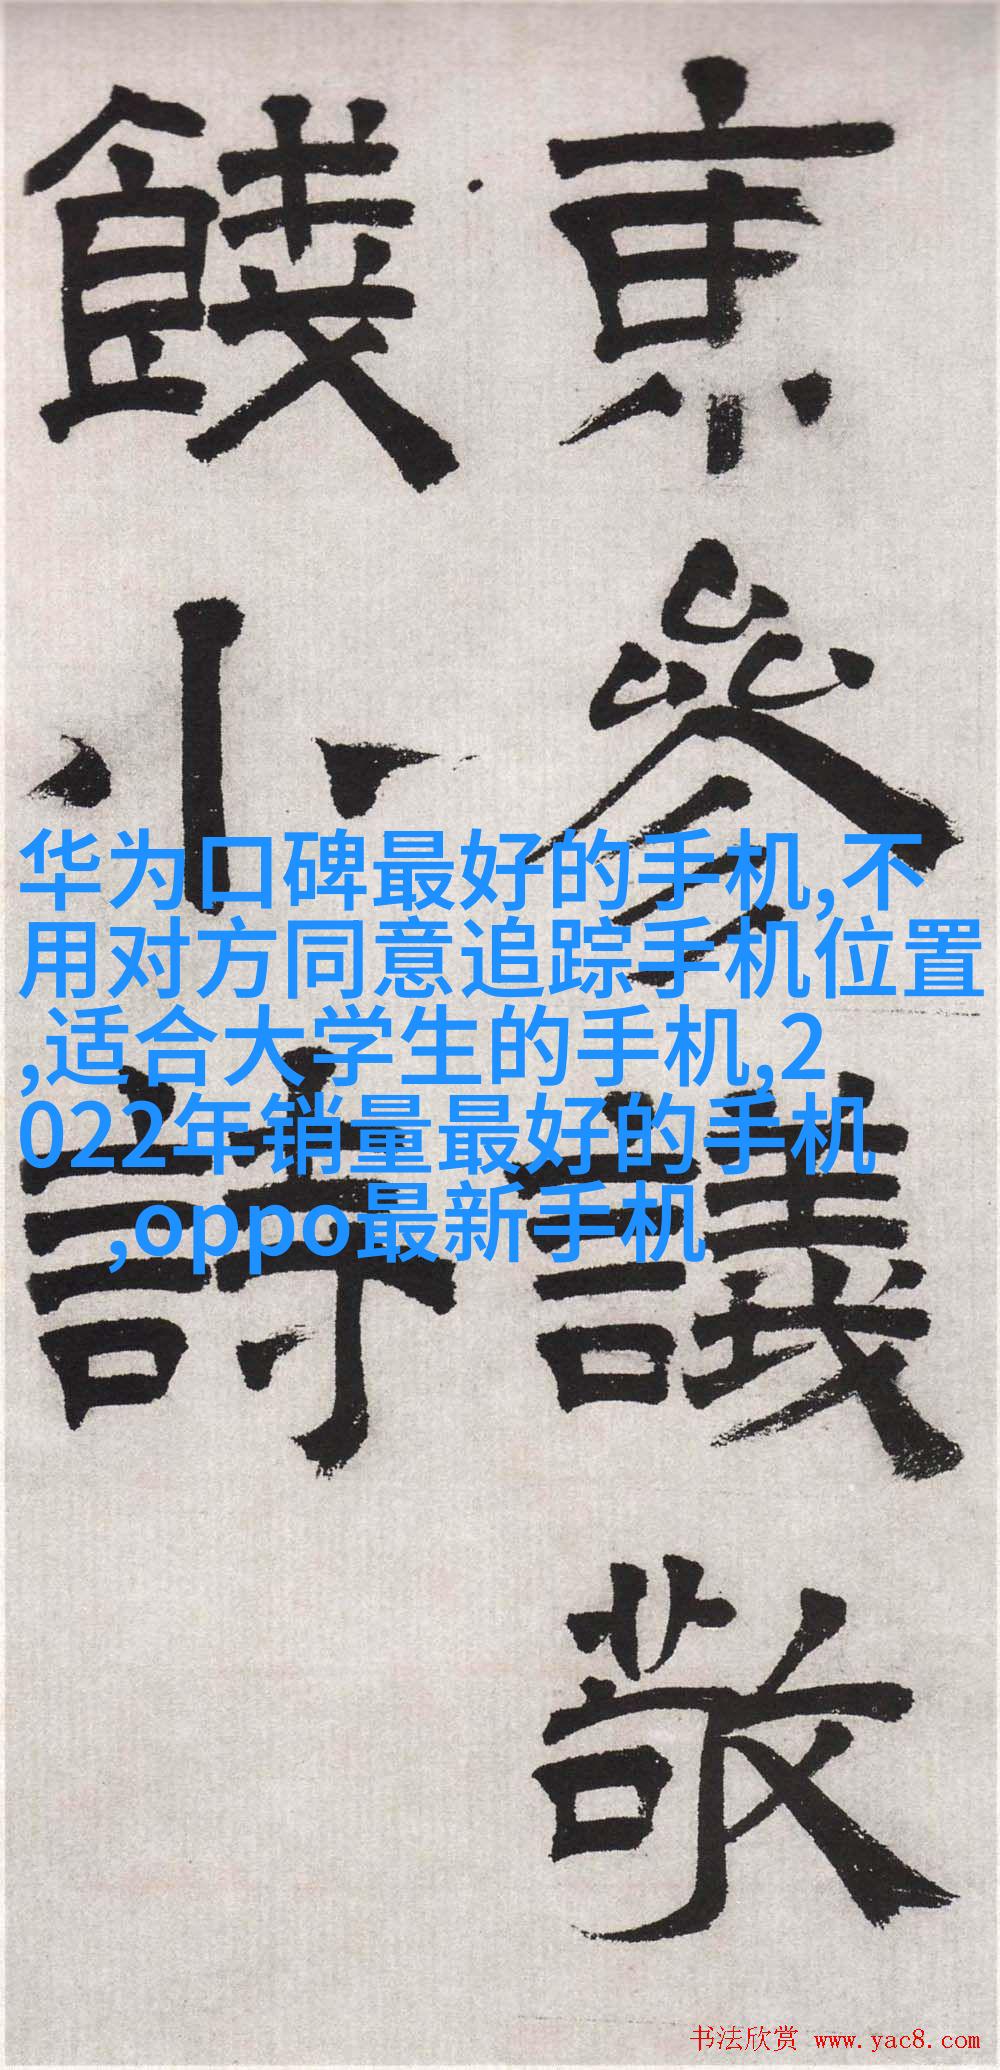 參議敬
餞小詩
华为口碑最好的手机,不
用对方同意追踪手机位置
,适合大学生的手机,2
022年销量最好的手机
,oppo最新手机
书法欣赏 www.yac8.com